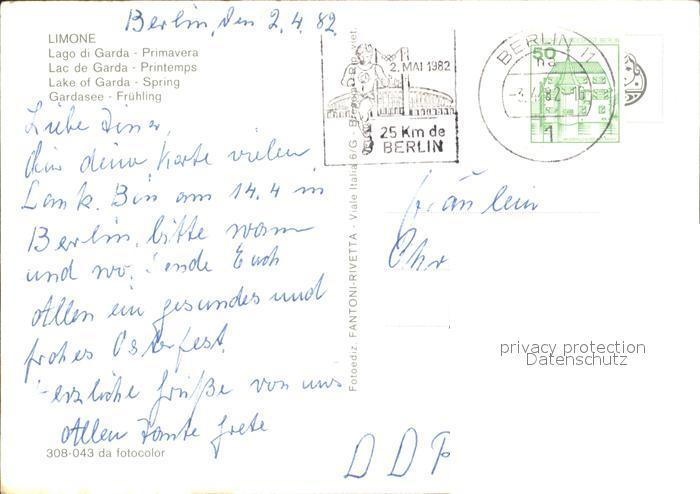 Berlin, den 2.4.82
LIMONE
Lago di Garda - Primavera
Lac de Garda - Printemps
Lake of Garda - Spring
Gardasee - Frühling
Liebe
für deine Karte vielen
Dank. Bin am 14.4 in
Berlin, bitte wann
und wo. Sende Euch
Allen ein gesundes und
frohes Osterfest.
Herzliche Grüße von uns
Allen Tante Grete
308-043 da fotocolor
Fotoediz. FANTONI-RIVETTA - Viale Italia 6/G
2. MAI 1982
25 Km de
BERLIN
BERLIN 11
-3.4.82-16
1
50
Fräulein
Chr
DDR
privacy protection
Datenschutz